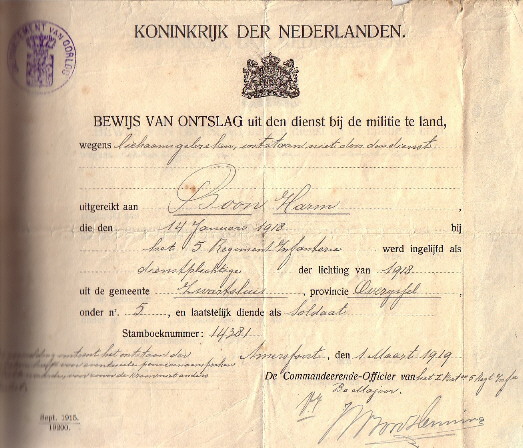 DEPARTEMENT VAN OORLOG
KONINKRIJK DER NEDERLANDEN.
BEWIJS VAN ONTSLAG uit den dienst bij de militie te land,
wegens lichaamsgebreken, ontstaan met den dienst
uitgereikt aan Boon Harm,
die den 14 Januari 1918 bij
het 5 Regement Infanterie werd ingelijfd als
dienstplichtige der lichting van 1918
uit de gemeente Zwartsluis, provincie Overijssel,
onder n°. 5, en laatstelijk diende als Soldaat
Stamboeknummer: 14381
Amersfoort, den 1 Maart 1919
De Commandeerende-Officier van het I Bat 5 Regt Infie
De Majoor.
Sept. 1915.